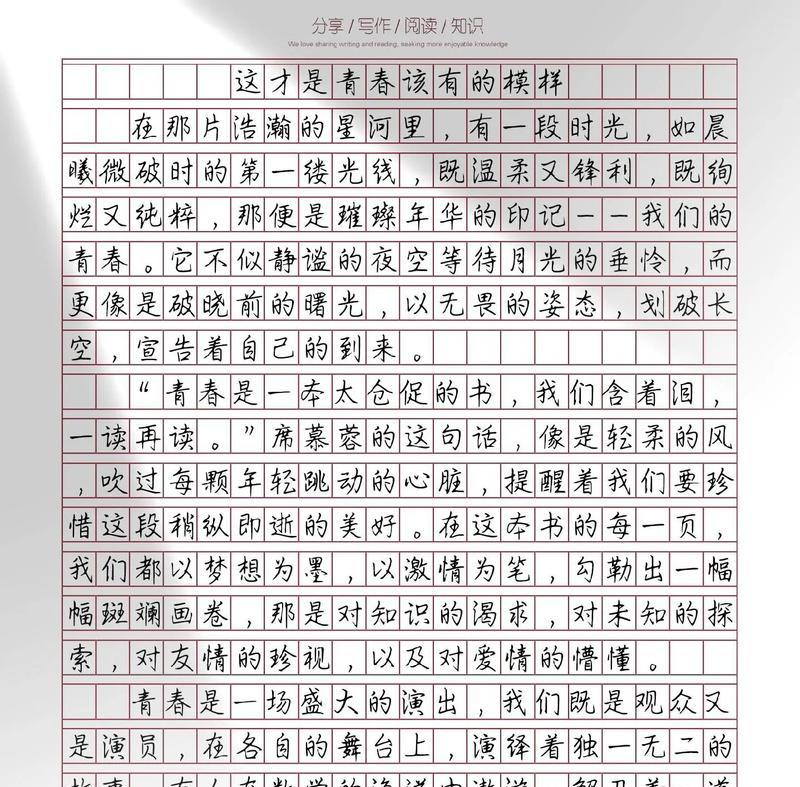 分享 / 写作 / 阅读 / 知识
We love sharing writing and reading, seeking more enjoyable knowledge
这才是青春该有的模样
在那片浩瀚的星河里，有一段时光，如晨
曦微破时的第一缕光线，既温柔又锋利，既绚
烂又纯粹，那便是璀璨年华的印记——我们的
青春。它不似静谧的夜空等待月光的垂怜，而
更像是破晓前的曙光，以无畏的姿态，划破长
空，宣告着自己的到来。
“青春是一本太仓促的书，我们含着泪，
一读再读。”席慕蓉的这句话，像是轻柔的风
，吹过每颗年轻跳动的心脏，提醒着我们要珍
惜这段稍纵即逝的美好。在这本书的每一页，
我们都以梦想为墨，以激情为笔，勾勒出一幅
幅斑斓画卷，那是对知识的渴求，对未知的探
索，对友情的珍视，以及对爱情的懵懂。
青春是一场盛大的演出，我们既是观众又
是演员，在各自的舞台上，演绎着独一无二的